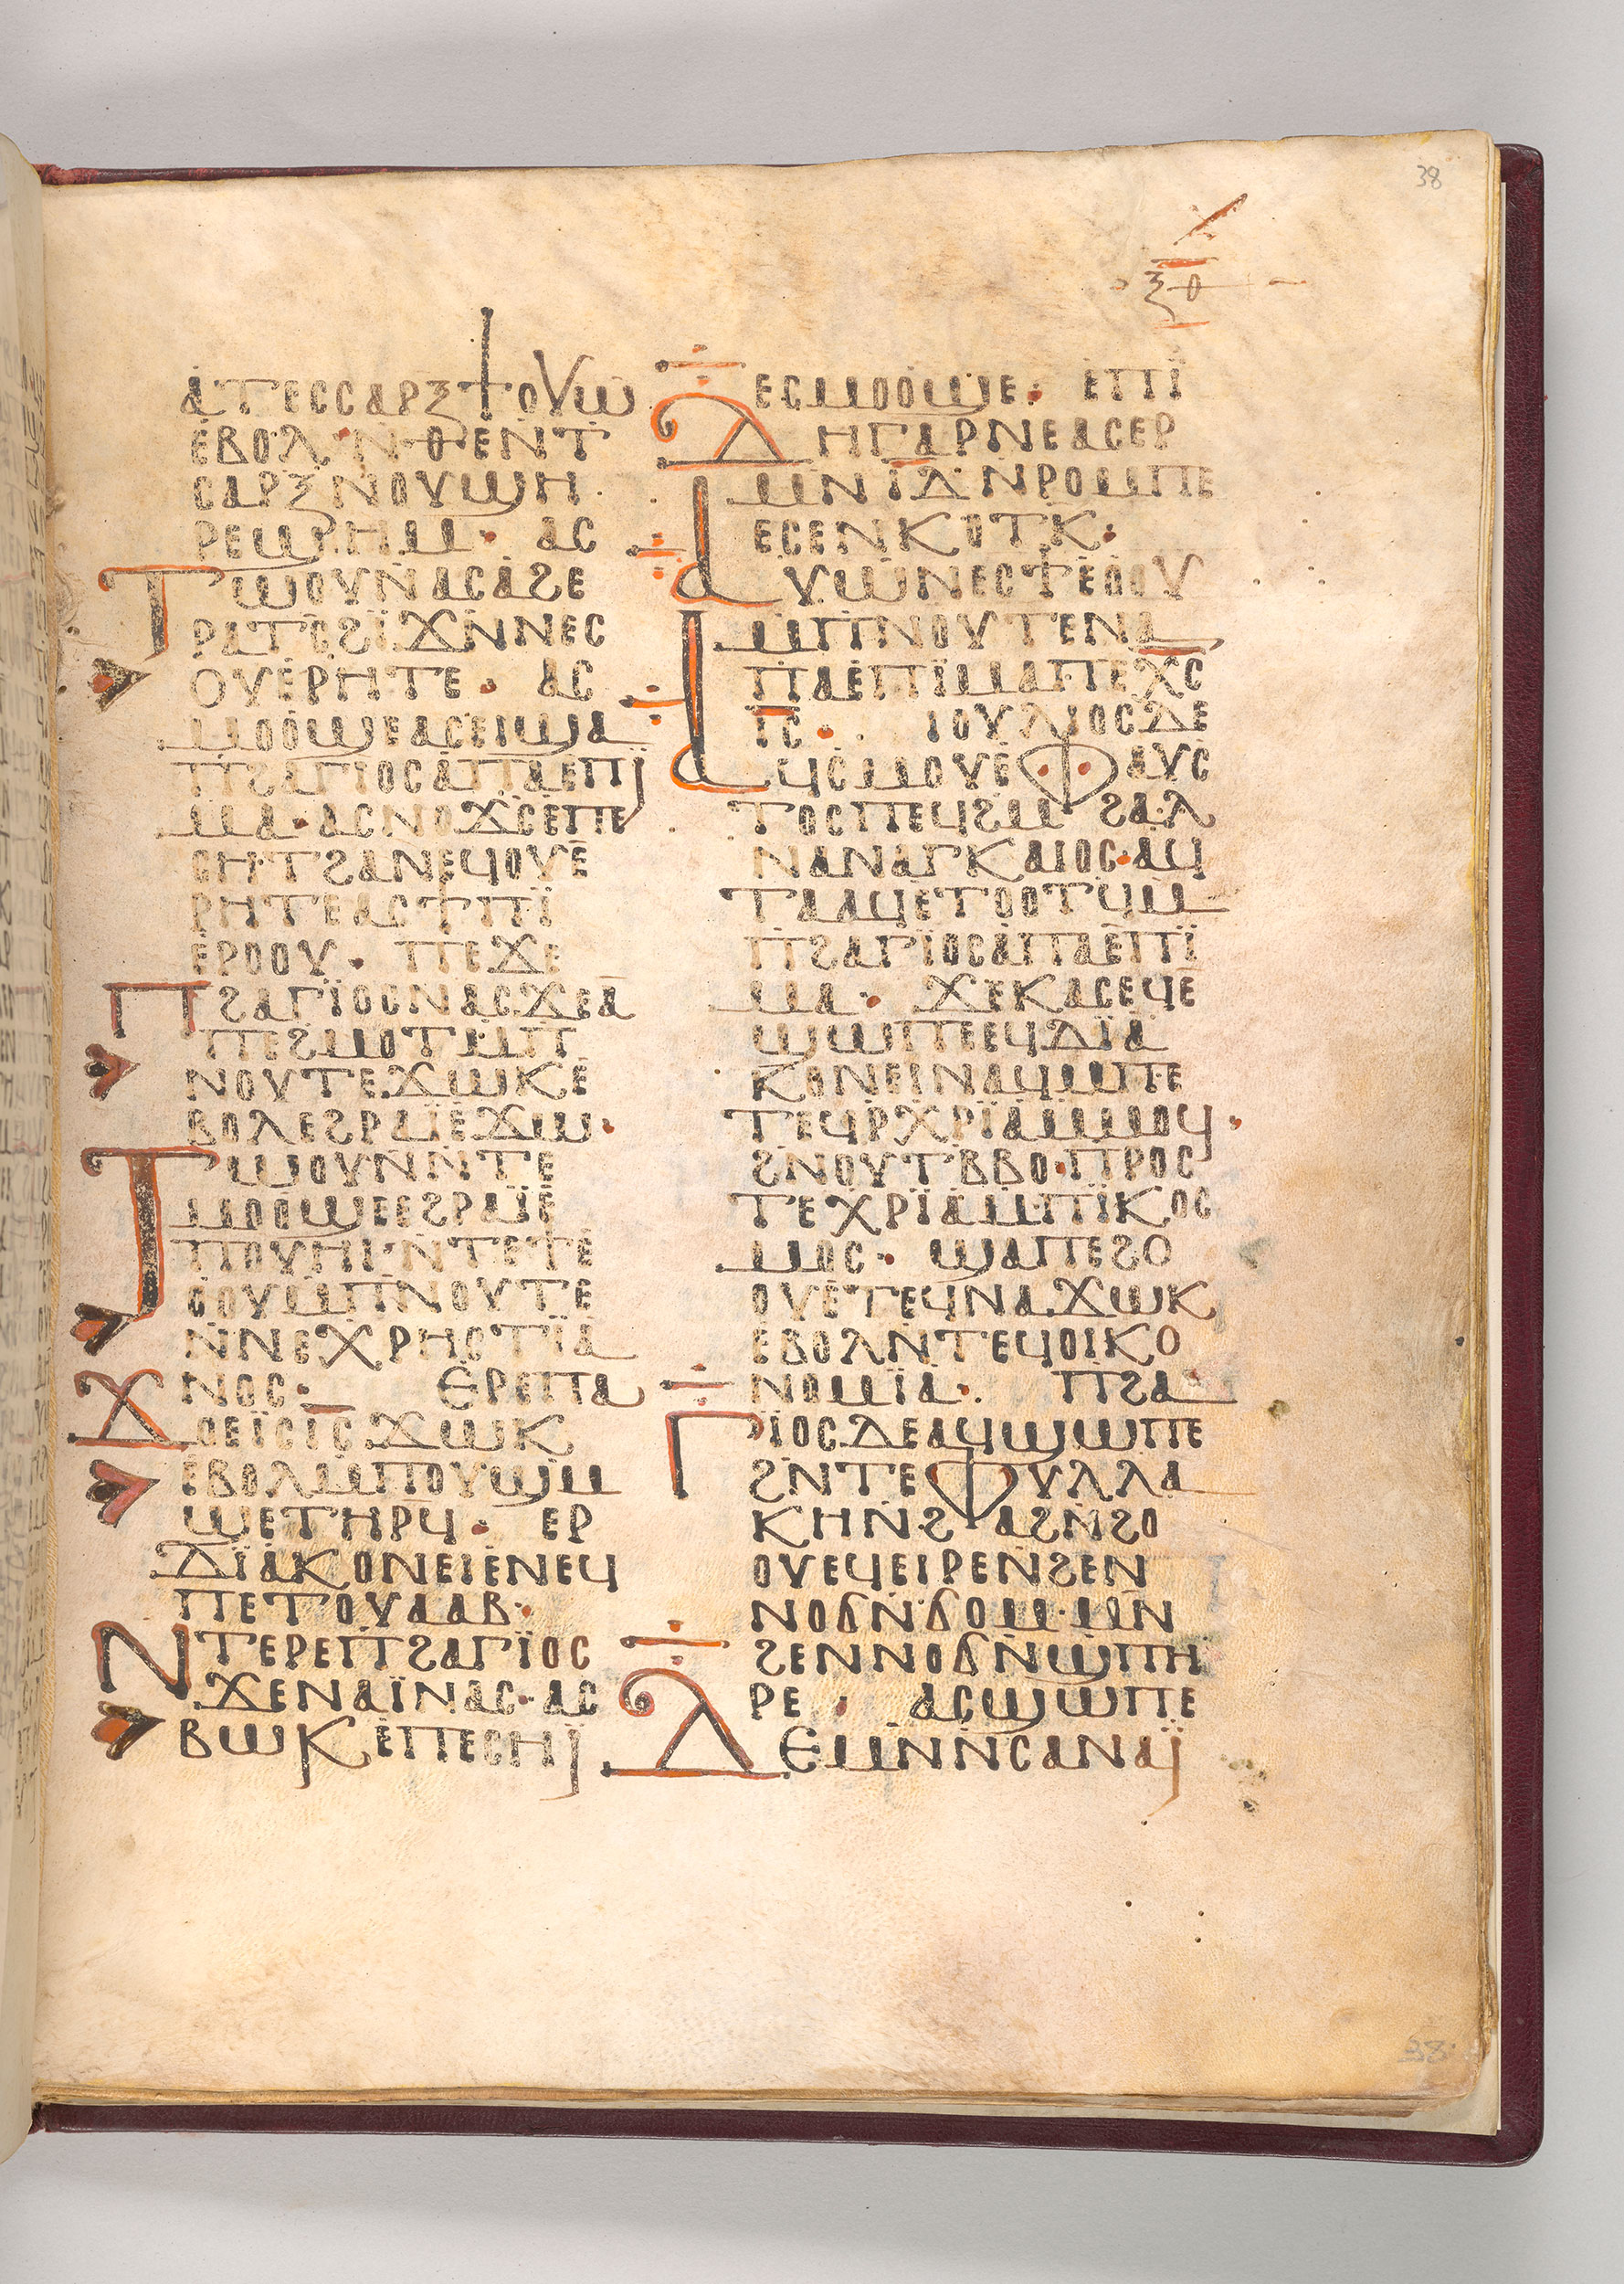 38
ⲝⲑ
ⲁⲧⲉⲥⲥⲁⲣⲝϯⲟⲩⲱ
ⲉⲃⲟⲗ·ⲛ̇ⲑⲉⲛⲧ
ⲥⲁⲣⲝⲛⲟⲩϣⲏ
ⲣⲉϣⲏⲙ· ⲁⲥ
ⲧⲱⲟⲩⲛⲁⲥⲁϩⲉ
ⲣⲁⲧⲥ̇ϩⲓ̈ϫⲛ̇ⲛⲉⲥ
ⲟⲩⲉⲣⲏⲧⲉ· ⲁⲥ
ⲙⲟⲟϣⲉⲁⲥⲉⲓϣⲁ
ⲡ̇ϩⲁⲅⲓⲟⲥⲁⲡⲁⲉⲡⲓ
ⲙⲁ·ⲁⲥⲛⲟϫⲥ̇ⲉⲡⲉ
ⲥⲏⲧϩⲁⲛⲉϥⲟⲩⲉ
ⲣⲏⲧⲉⲁⲥϯⲡⲓ̈
ⲉⲣⲟⲟⲩ· ⲡⲉϫⲉ
ⲡϩⲁⲅⲓ̈ⲟⲥⲛⲁⲥϫⲉⲁ
ⲡⲉϩⲙⲟⲧⲙ̇ⲡ
ⲛⲟⲩⲧⲉϫⲱⲕⲉ
ⲃⲟⲗⲉϩⲣⲁⲓ̈ⲉϫⲱ·
ⲧⲱⲟⲩⲛⲛ̇ⲧⲉ
ⲙⲟⲟϣⲉⲉϩⲣⲁⲓ̈ⲉ
ⲡⲟⲩⲏⲓ·ⲛ̇ⲧⲉϯⲉ
ⲟⲟⲩⲙ̇ⲡⲛⲟⲩⲧⲉ
ⲛ̇ⲛⲉⲭⲣⲏⲥⲧⲓ̈ⲁ
ⲛⲟⲥ· ⲉⲣⲉⲡⲁ
ϫⲟⲉⲓ̈ⲥⲓ̅ⲥ̅ϫⲱⲕ
ⲉⲃⲟⲗⲙ̇ⲡⲟⲩϣⲙ̇
ϣⲉⲧⲏⲣϥ· ⲉⲣ
ⲇⲓ̈ⲁⲕⲟⲛⲉⲓⲉⲛⲉϥ
ⲡⲉⲧⲟⲩⲁⲁⲃ·
ⲛⲧⲉⲣⲉⲡϩⲁⲅⲓ̈ⲟⲥ
ϫⲉⲛⲁⲓ̈ⲛⲁⲥ·ⲁⲥ
ⲃⲱⲕⲉⲡⲉⲥⲏⲓ̈
ⲉⲥⲙⲟⲟϣⲉ· ⲉⲡⲓ̈
ⲇⲏⲅⲁⲣⲛⲉⲁⲥⲉⲣ
ⲙⲛⲓ̅ⲇ̅ⲛ̇ⲣⲟⲙⲡⲉ
ⲉⲥⲉⲛⲕⲟⲧⲕ·
ⲁⲩⲱⲛⲉⲥϯⲉⲟⲟⲩ
ⲙ̇ⲡⲛⲟⲩⲧⲉⲛⲁ
ⲡⲁⲉⲡⲓ̈ⲙⲁ·ⲡⲉⲭ̅ⲥ̅
ⲓ̅ⲥ̅· ⲓⲟⲩⲗⲓⲟⲥⲇⲉ
ⲁϥⲥ̇ⲙⲟⲩⲉⲫⲁⲩⲥ
ⲧⲟⲥⲡⲉϥϩⲙ̇ϩⲁ·ⲗ
ⲛⲁⲛⲁⲅⲕⲁⲓⲟⲥ·ⲁϥ
ⲧⲁⲁϥⲉⲧⲟⲟⲧϥⲙ̇
ⲡϩⲁⲅⲓ̈ⲟⲥⲁⲡⲁⲉⲡⲓ̈
ⲙⲁ· ϫⲉⲕⲁⲥⲉϥⲉ
ϣⲱⲡⲉⲉϥⲇⲓ̈ⲁ
ⲕⲟⲛⲉⲓⲛⲁϥⲙ̇ⲡⲉ
ⲧⲉϥⲣ̇ⲭⲣⲓ̈ⲁⲙ̇ⲙⲟϥ·
ϩⲛⲟⲩⲧⲃ̇ⲃⲟ·ⲡⲣⲟⲥ
ⲧⲉⲭⲣⲓ̈ⲁⲙ̇ⲡⲓ̈ⲕⲟⲥ
ⲙⲟⲥ· ϣⲁⲡⲉϩⲟ
ⲟⲩⲉⲧⲉϥⲛⲁϫⲱⲕ
ⲉⲃⲟⲗⲛ̇ⲧⲉϥⲟⲓⲕⲟ
ⲛⲟⲙⲓ̈ⲁ· ⲡϩⲁ
ⲅⲓ̈ⲟⲥⲇⲉⲁϥϣⲱⲡⲉ
ϩⲛ̇ⲧⲉⲫⲩⲗⲗⲁ
ⲕⲏⲛ̇ϩⲁϩⲛ̇ϩⲟ
ⲟⲩⲉϥⲉⲓⲣⲉⲛ̇ϩⲉⲛ
ⲛⲟϭⲛ̇ϭⲟⲙ·ⲙⲛ
ϩⲉⲛⲛⲟϭⲛ̇ϣⲡⲏ
ⲣⲉ · ⲁⲥϣⲱⲡⲉ
ⲇⲉⲙⲛ̇ⲛ̇ⲥⲁⲛⲁⲓ̈
38